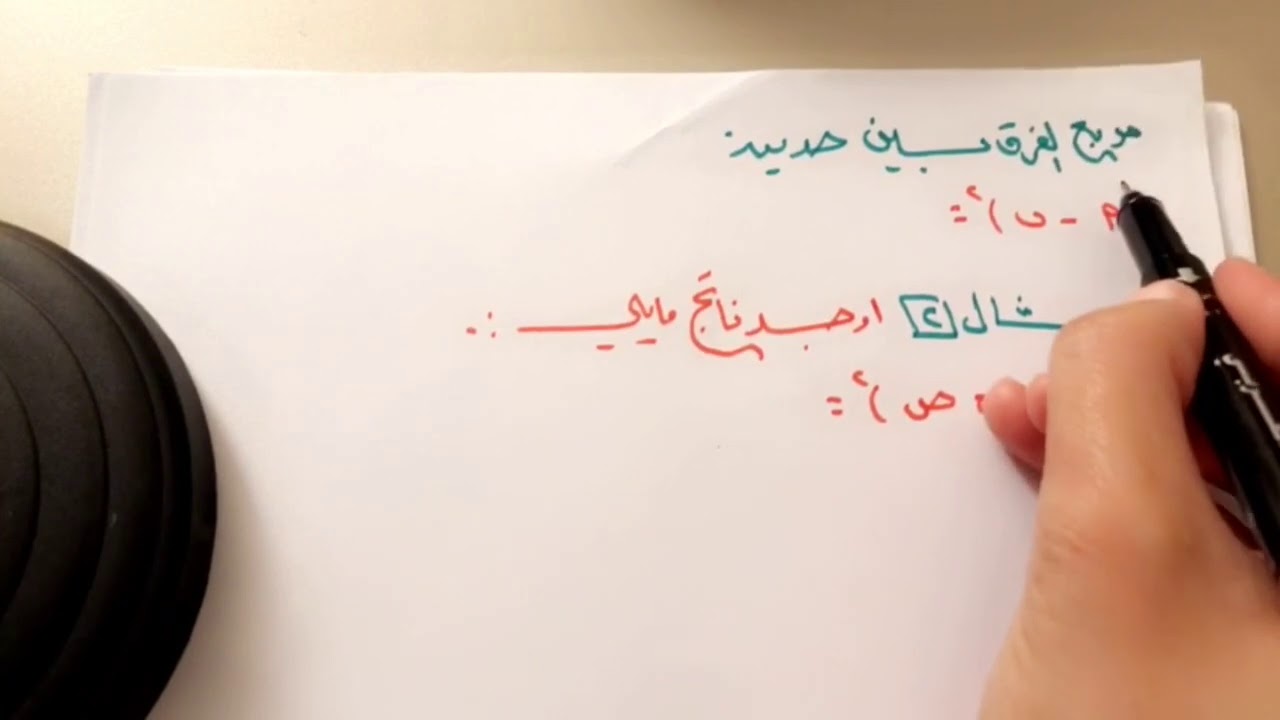 مربع الفرق بين حدين
أ - ب )٢ =
مثال ٢ اوجد ناتج مايلي :.
- ص )٢ =